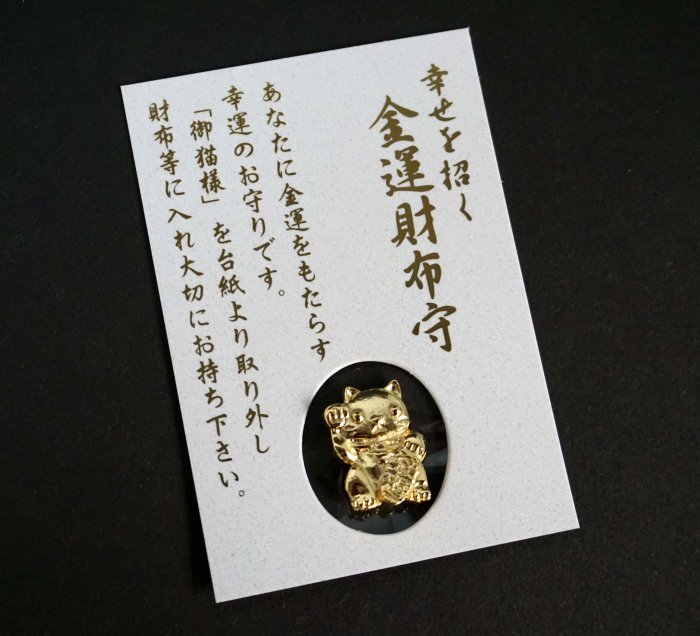 幸せを招く
金運財布守
あなたに金運をもたらす
幸運のお守りです。
「御猫様」を台紙より取り外し
財布等に入れ大切にお持ち下さい。